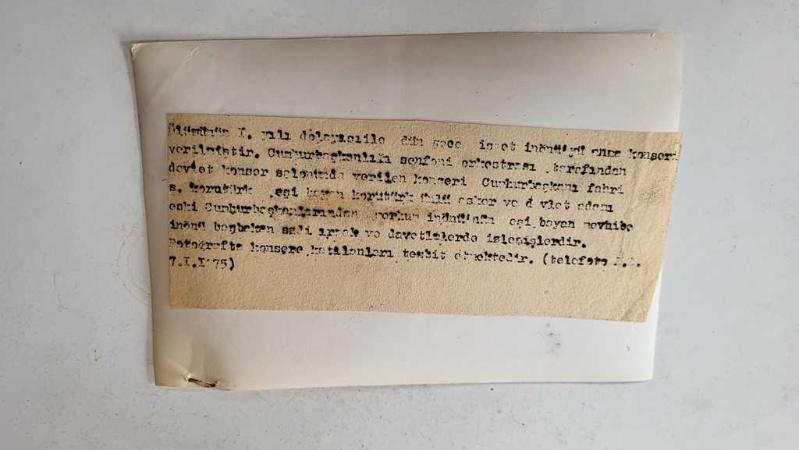 ölümünün I. yılı dolayısıile dün gece ismet inönü'yü anma konseri
verilmiştir. Cumhurbaşkanlığı senfoni orkestrası tarafından
devlet konser salonunda verilen konseri Cumhurbaşkanı fahri
s. korutürk eşi bayan korütürk ünlü asker ve d vlet adamı
eski Cumhurbaşkanlarından inönü'nün eşi bayan mevhibe
inönü başbakan sadi ırmak ve davetlilerde izlemişlerdir.
Fotoğrafta konsere katılanları tesbit etmektedir. (telefoto A.A.
7.I.I975)